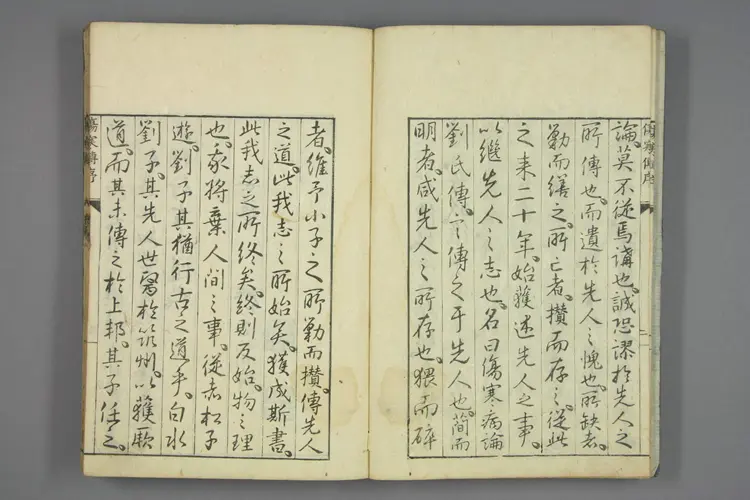 論。莫不從焉講也。誠恐謬於先人之
所傳也。而遺於先人之愧也。所缺者。
勤而繕之。所亡者。攢而存之。從此
之来二十年。始獲述先人之事。
以繼先人之志也。名曰傷寒病論
劉氏傳。之傳之于先人也。簡而
明者。咸先人之所存也。猥而碎
者。維予小子之所勤而攢。傳先人
之道。此我志之所始矣。獲成斯書。
此我志之所終矣。終則反始。物之理
也。我將棄人間之事。從赤松子
遊。劉子其猶行古之道乎。白水
劉子。其先人世醫於筑州。以獲厥
道。而其未傳之於上邦。其子任之。
傷寒傳序